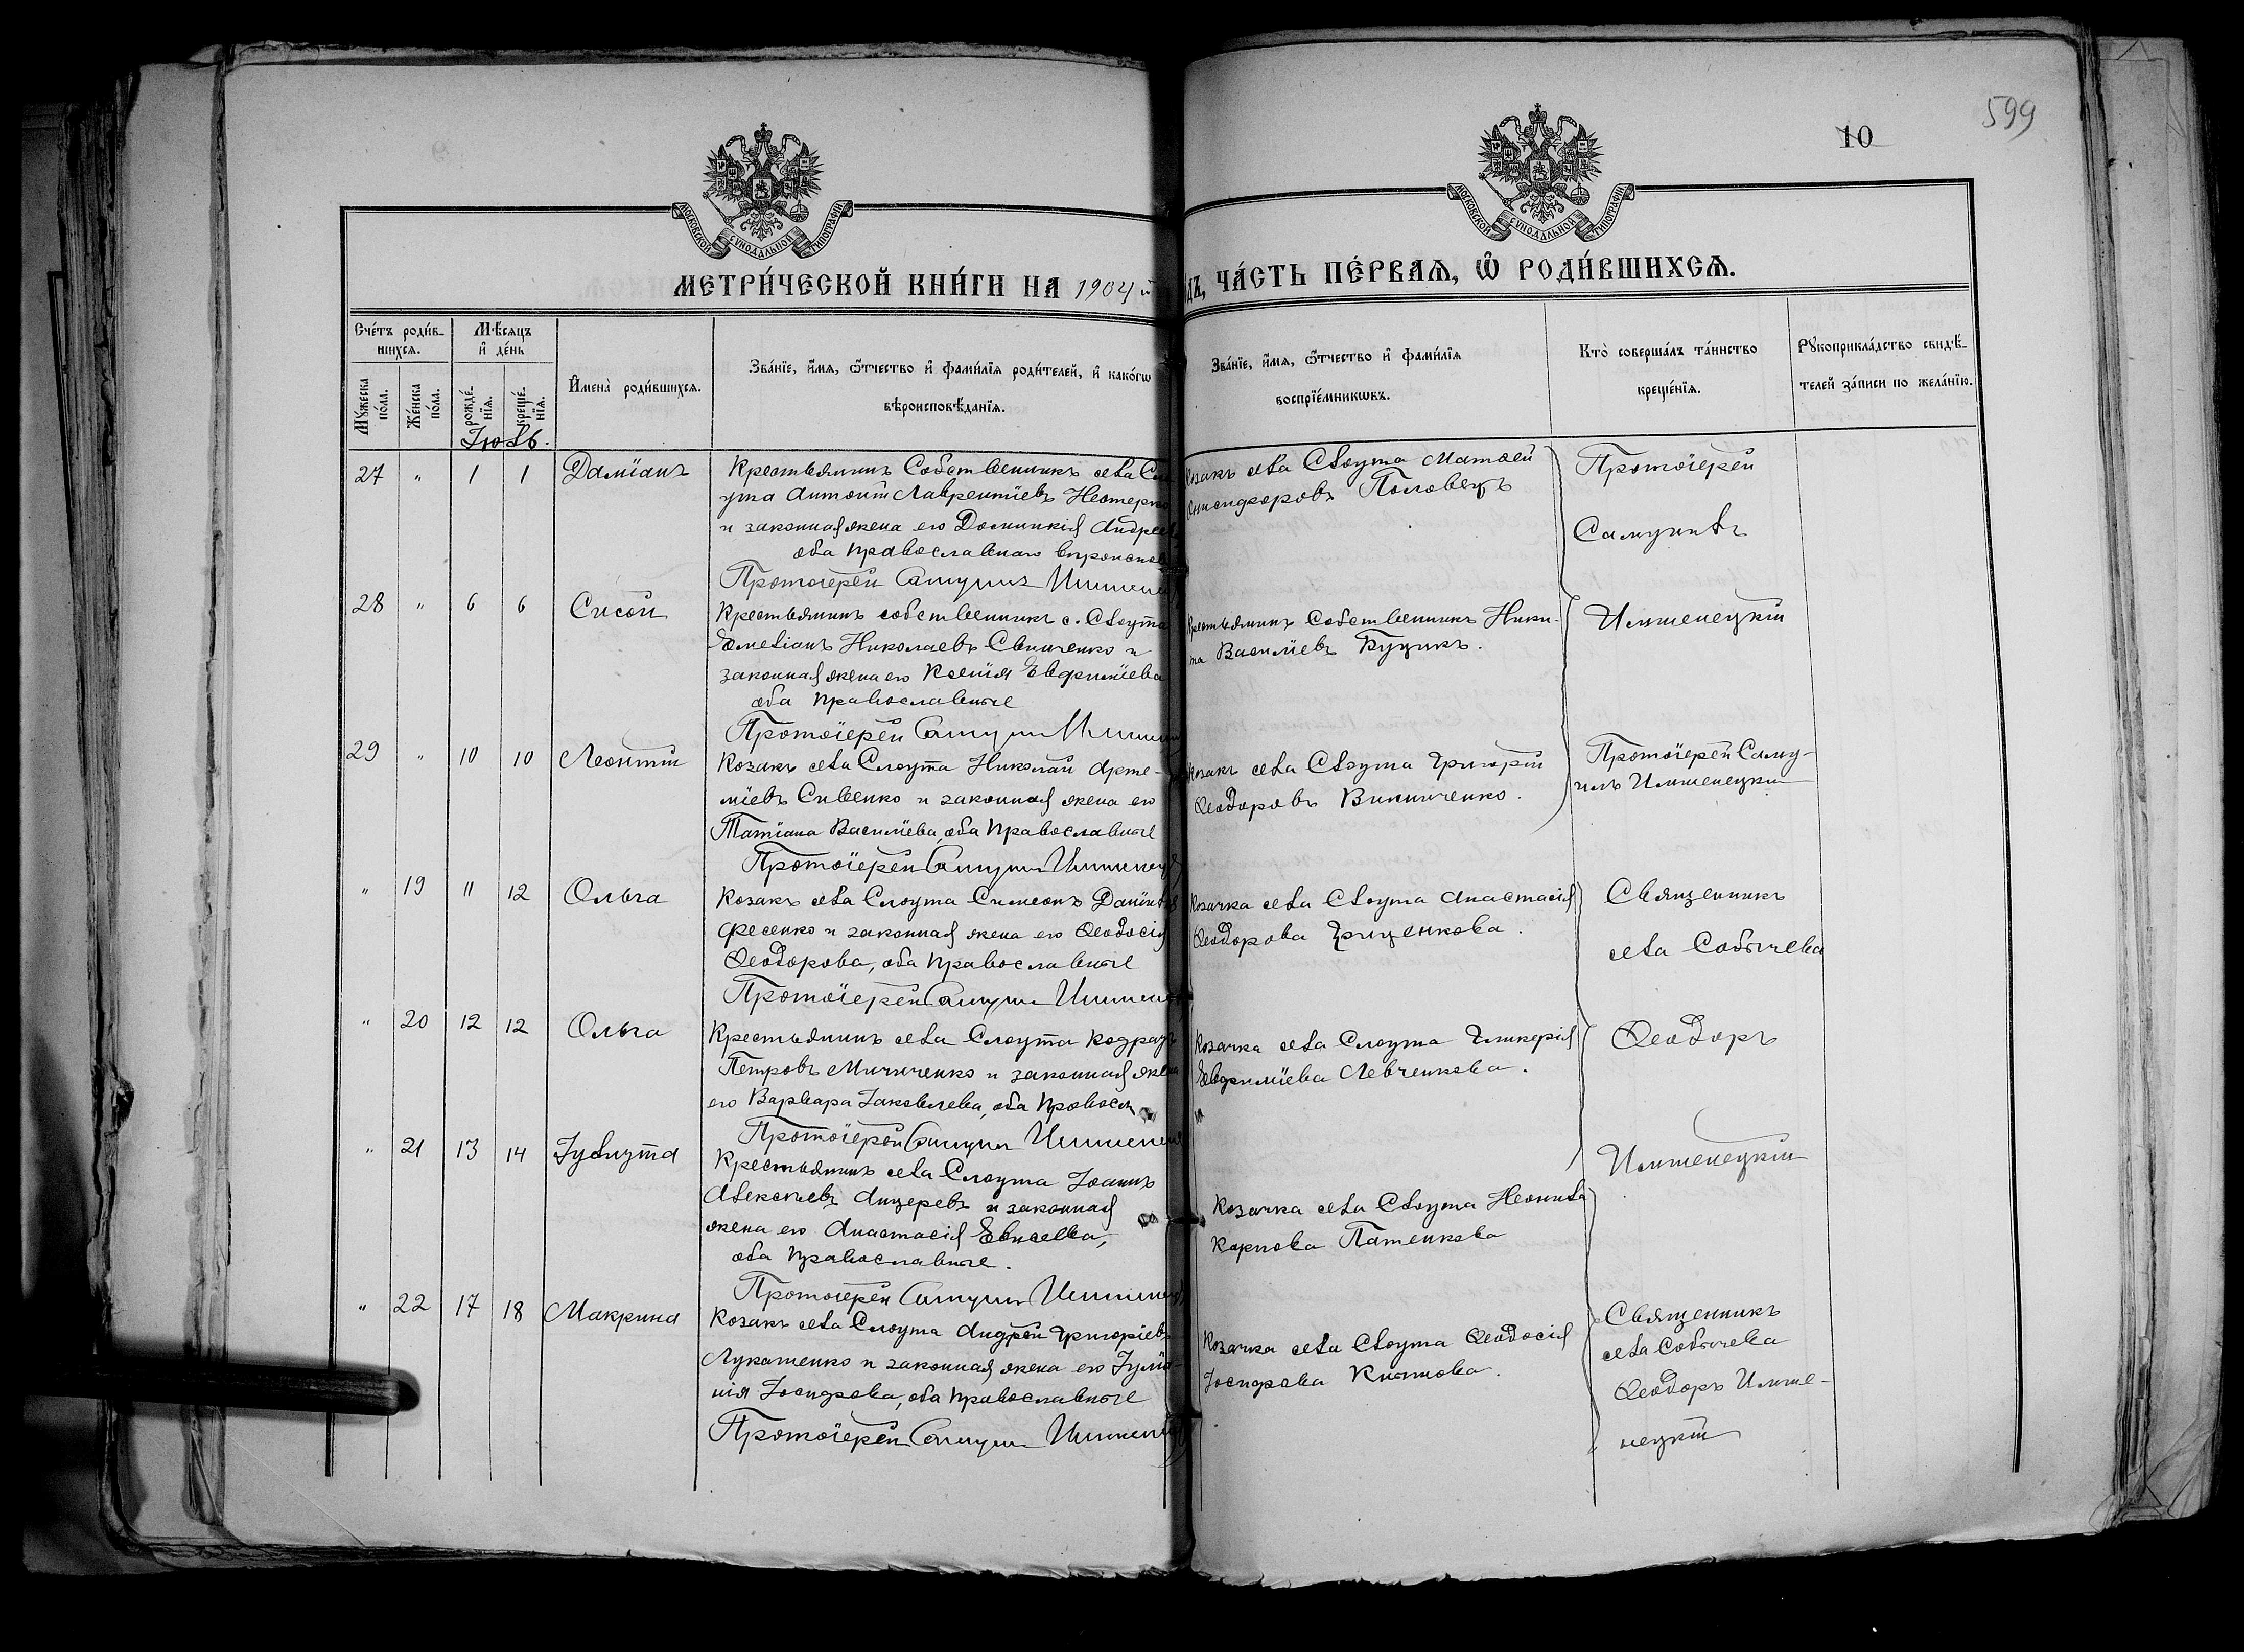 599
10
МОСКОВСКОЙ СѴНОДАЛЬНОЙ ТИПОГРАФІИ
МОСКОВСКОЙ СѴНОДАЛЬНОЙ ТИПОГРАФІИ
МЕТРИ́ЧЕСКОЙ КНИ́ГИ НА 1904 й
дъ, ЧА́СТЬ ПЕ́РВАѦ, Ѽ РОДИ́ВШИХСѦ.
Сче́тъ роди́в-
шихсѧ.
Мѣ́сѧцъ
и҆ де́нь
Мꙋ́жеска по́ла.
Же́нска по́ла.
рожде́-нїѧ.
креще́-нїѧ.
И҆мена̀ роди́вшихсѧ.
Зва́нїе, и҆́мѧ, ѻ҆́тчество и҆ фами́лїѧ роди́телей, и҆ како́гѡ
вѣроисповѣ́данїѧ.
Зва́нїе, и҆́мѧ, ѻ҆́тчество и҆ фами́лїѧ
воспрїе́мникѡвъ.
Кто̀ соверша́лъ та́инство
креще́нїѧ.
Рꙋкоприкла́дство свидѣ́-
телей за́писи по жела́нїю.
Іюль.
27 " 1 1 Даміанъ
Крестьянинъ Собственникъ села Сло
ута Антоній Лаврентіевъ
и законная жена его Домникія Андрее
оба православнаго вѣроиспов
Протоіерей Самуилъ Имшенец
Козакъ села Слоута Матѳей
Онисифоровъ Половецъ
Протоіерей
Самуилъ
28 " 6 6 Сисой
Крестьянинъ собственникъ с. Слоута
Емеліанъ Николаевъ Свинченко и
законная жена его Ксенія Евфиміева
оба православные
Протоіерей Самуилъ Имшенец
Крестьянинъ Собственникъ Ники-
та Василіевъ Буцикъ.
Имшенецкій
29 " 10 10 Леонтій
Козакъ села Слоута Николай Арте-
міевъ Сивенко и законная жена его
Татіана Василіева, оба православные
Протоіерей Самуилъ Имшенец
Козакъ села Слоута Григорій
Ѳеодоровъ Винниченко.
Протоіерей Саму-
илъ Имшенецкій
" 19 11 12 Ольга
Козакъ села Слоута Симеонъ Даніил
Фесенко и законная жена его Ѳеодосія
Ѳеодорова, оба православные
Протоіерей Самуилъ Имшенец
Козачка села Слоута Анастасія
Ѳеодорова Гриценкова.
Священникъ
села Собычева
" 20 12 12 Ольга
Крестьянинъ села Слоута Кодратъ
Петровъ Мичиченко и законная жена
его Варвара Іаковлева, оба правосл
Протоіерей Самуилъ Имшенец
Козачка села Слоута Гликерія
Евфиміева Левченкова.
Ѳеодоръ
" 21 13 14 Іулитта
Крестьянинъ села Слоута Іоаннъ
Алексіевъ Анцеревъ и законная
жена его Анастасія Евисеева,
оба православные.
Протоіерей Самуилъ Имшенец
Козачка села Слоута Неонила
Карпова Патенкова
Имшенецкій
" 22 17 18 Макрина
Козакъ села Слоута Андрей Григоріевъ
Лукашенко и законная жена его Іуліа-
нія Іосифова, оба православные
Протоіерей Самуилъ Имшенец
Козачка села Слоута Ѳеодосія
Іосифова
Священникъ
села Собычева
Ѳеодоръ Имше-
нецкій